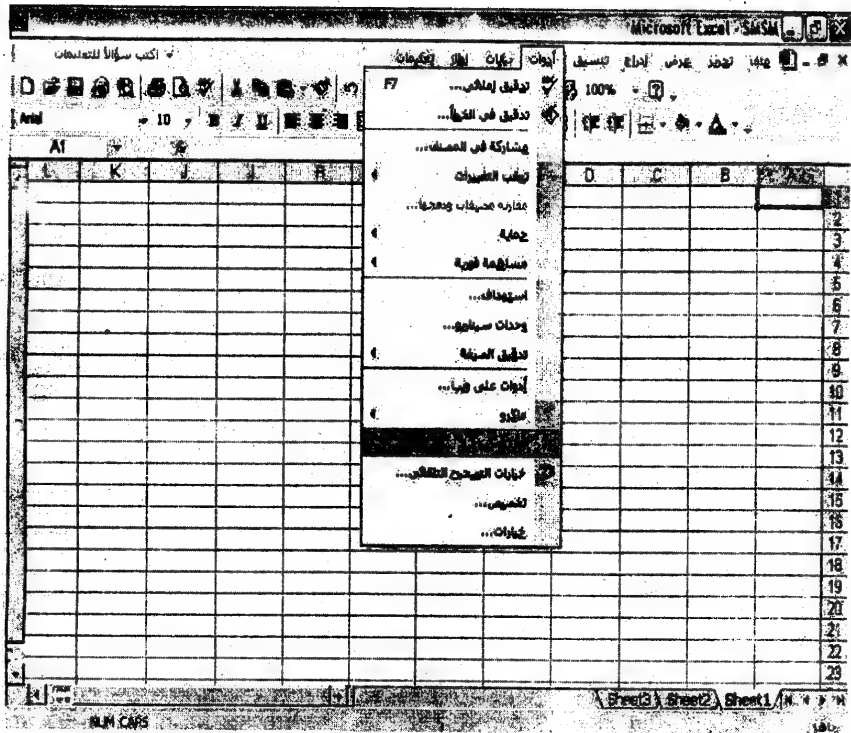 Microsoft Excel - SMSM
ملف تحرير عرض إدراج تنسيق أدوات بيانات إطار تعليمات
اكتب سؤالاً للتعليمات
100%
Arial 10
A1
تدقيق إملائي... F7
تدقيق في الخطأ...
مشاركة في المصنف...
تعقب التغييرات
مقارنة مصنفات ودمجها...
حماية
مساهمة فورية
استهداف...
وحدات سيناريو...
تدقيق الصيغة
أدوات على ويب...
ماكرو
خيارات التصحيح التلقائي...
تخصيص...
خيارات...
A B C D
J K L
1
2
3
4
5
6
7
8
9
10
11
12
13
14
15
16
17
18
19
20
21
22
23
Sheet1 Sheet2 Sheet3
جاهز
NUM CAPS